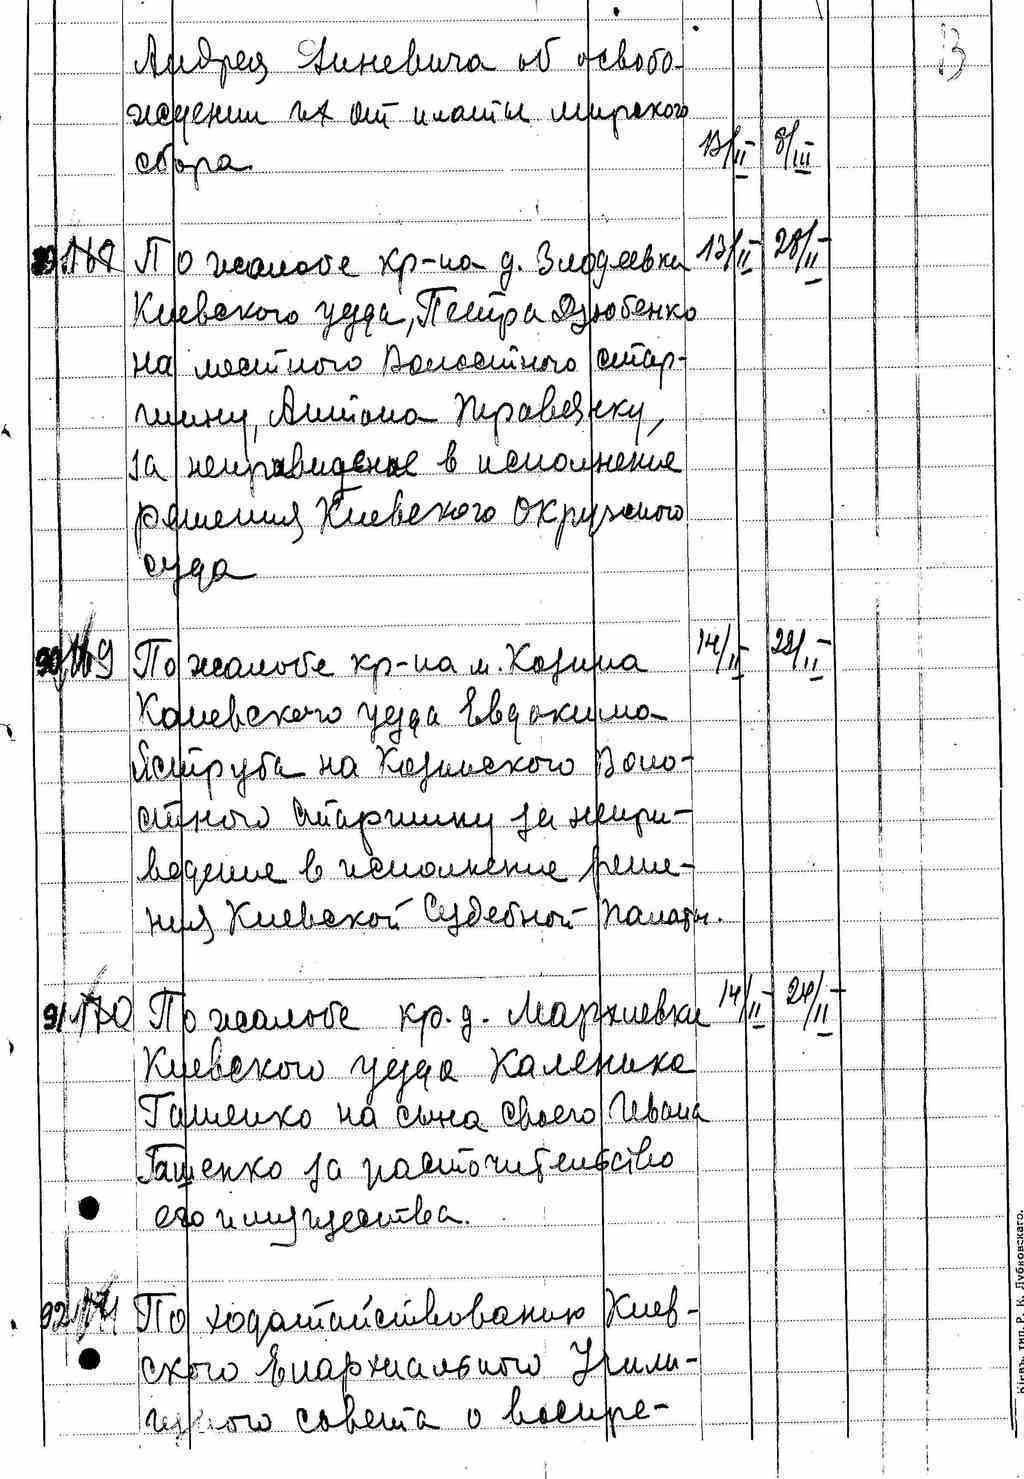 Андрея Линевича об освобо-
ждении их от платы мирского
сбора. 13/II 8/III
168 По жалобе кр-на д. Злодеевки 13/II 28/II
Киевского уезда, Петра Дзюбенко
на местного Волостного стар-
шину, Антона Правдянку,
за неприведение в исполнение
решения Киевского Окружного
суда
90 169 По жалобе кр-на м. Козина 14/II 28/II
Каневского уезда Евдокима
Яструба на Козинского Воло-
стного старшину за непри-
ведение в исполнение реше-
ния Киевской Судебной Палаты.
91 170 По жалобе кр. д. Мархлевки 14/II 24/II
Киевского уезда Каленика
Гашенко на сына своего Ивана
Гашенко за расточительство
его имущества.
92 171 По ходатайствованию Киев-
ского Епархиального Учили-
щного совета о воспре-
Кіевъ, тип. Р. К. Лубковскаго.